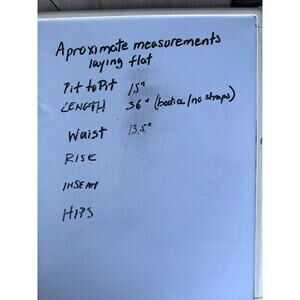 Aproximate measurements
laying flat
Pit to Pit 15"
LENGTH 36" (bodice/no straps)
Waist 13.5"
RISE
INSEAM
HIPS